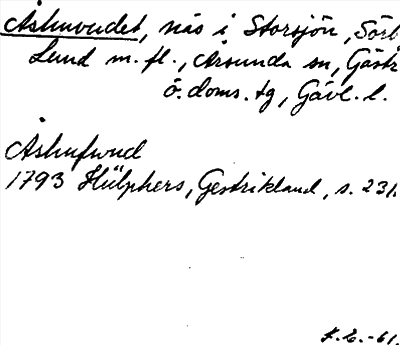 Åshuvudet, näs i Storsjön, Sörb
Lund m. fl., Årsunda sn, Gästr
ö. doms. tg, Gävl. l.
Åshufwud
1793 Hülphers, Gestrikland, s. 231.
F.E.-61.